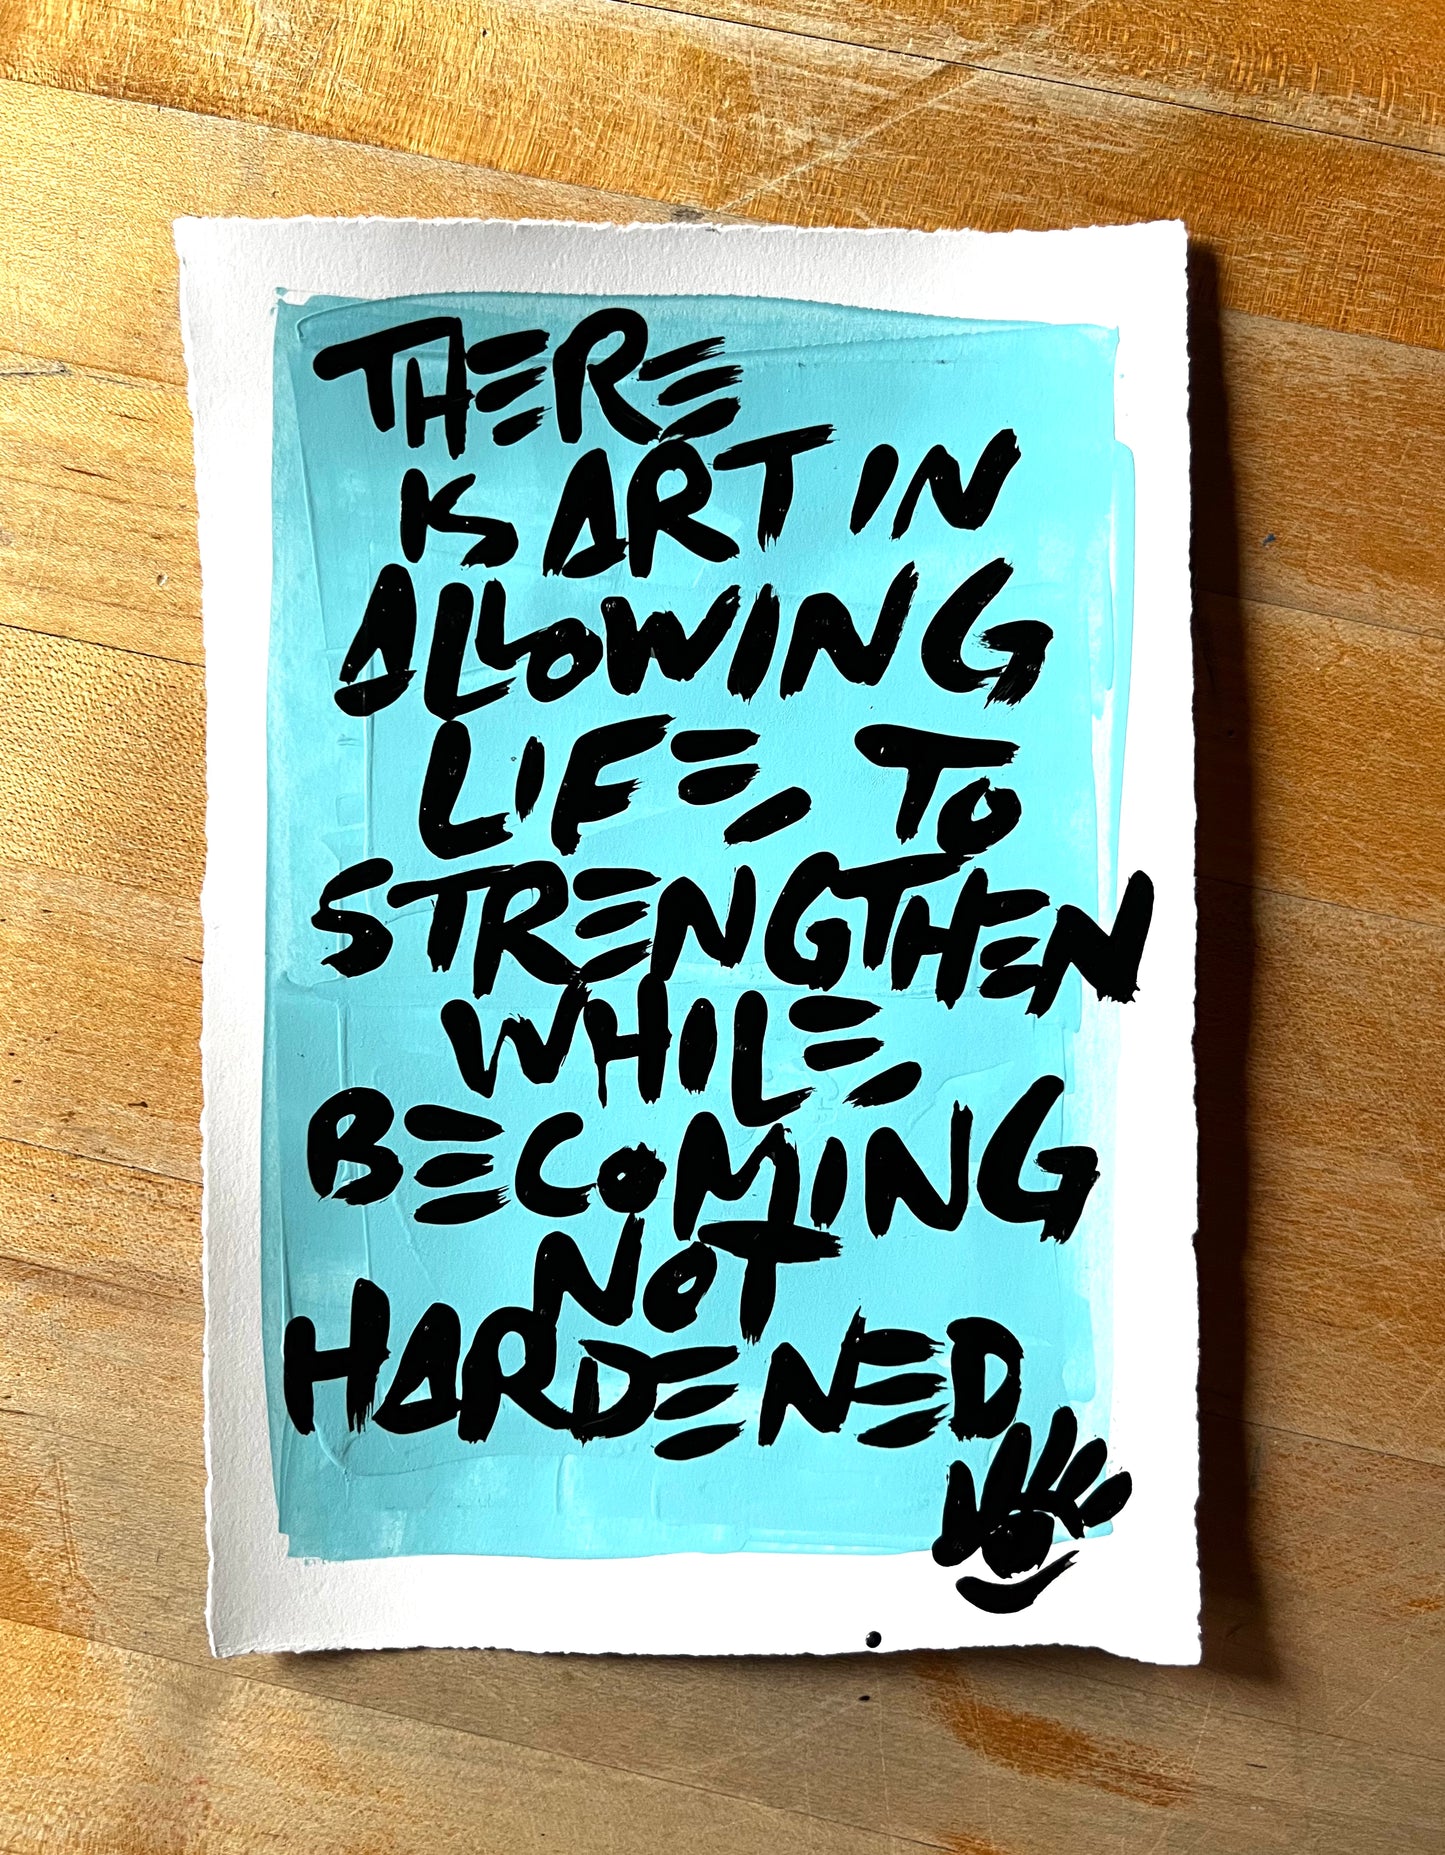 THERE
IS ART IN
ALLOWING
LIFE, TO
STRENGTHEN
WHILE,
BECOMING
NOT
HARDENED